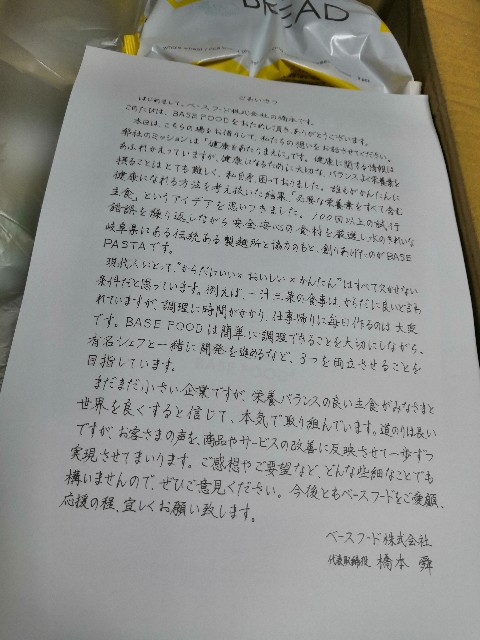 BREAD
ごあいさつ
はじめまして。ベースフード株式会社の橋本です。
このたびは、BASE FOODをおためし頂き、ありがとうございます。
本日は、こちらの場をお借りして、私たちの想いをお話させてください。
弊社のミッションは「健康をあたりまえに」です。健康に関する情報は
あふれかえっていますが、健康になるために大切な、バランスよく栄養素を
摂ることはとても難しく、私自身、困っておりました。誰もがかんたんに
健康になれる方法を考え抜いた結果、「必要な栄養素をすべて含む
主食」というアイデアを思いつきました。100回以上の試行
錯誤を繰り返しながら安全安心の食材を厳選し、水のきれいな
岐阜県にある伝統ある製麺所と協力のもと、創りあげたのがBASE
PASTAです。
現代人にとって、“からだにいい×おいしい×かんたん”はすべて欠かせない
条件だと思っています。例えば、一汁三菜の食事は、からだに良いと言わ
れていますが、調理に時間がかかり、仕事帰りに毎日作るのは大変
です。BASE FOODは簡単に調理できることを大切にしながら、
有名シェフと一緒に開発を進めるなど、3つを両立させることを
目指しています。
まだまだ小さい企業ですが、栄養バランスの良い主食がみなさまと
世界を良くすると信じて、本気で取り組んでいます。道のりは長い
ですが、お客さまの声を、商品やサービスの改善に反映させて一歩ずつ
実現させてまいります。ご感想やご要望など、どんな些細なことでも
構いませんので、ぜひご意見ください。今後ともベースフードをご愛顧、
応援の程、宜しくお願い致します。
ベースフード株式会社
代表取締役 橋本 舜